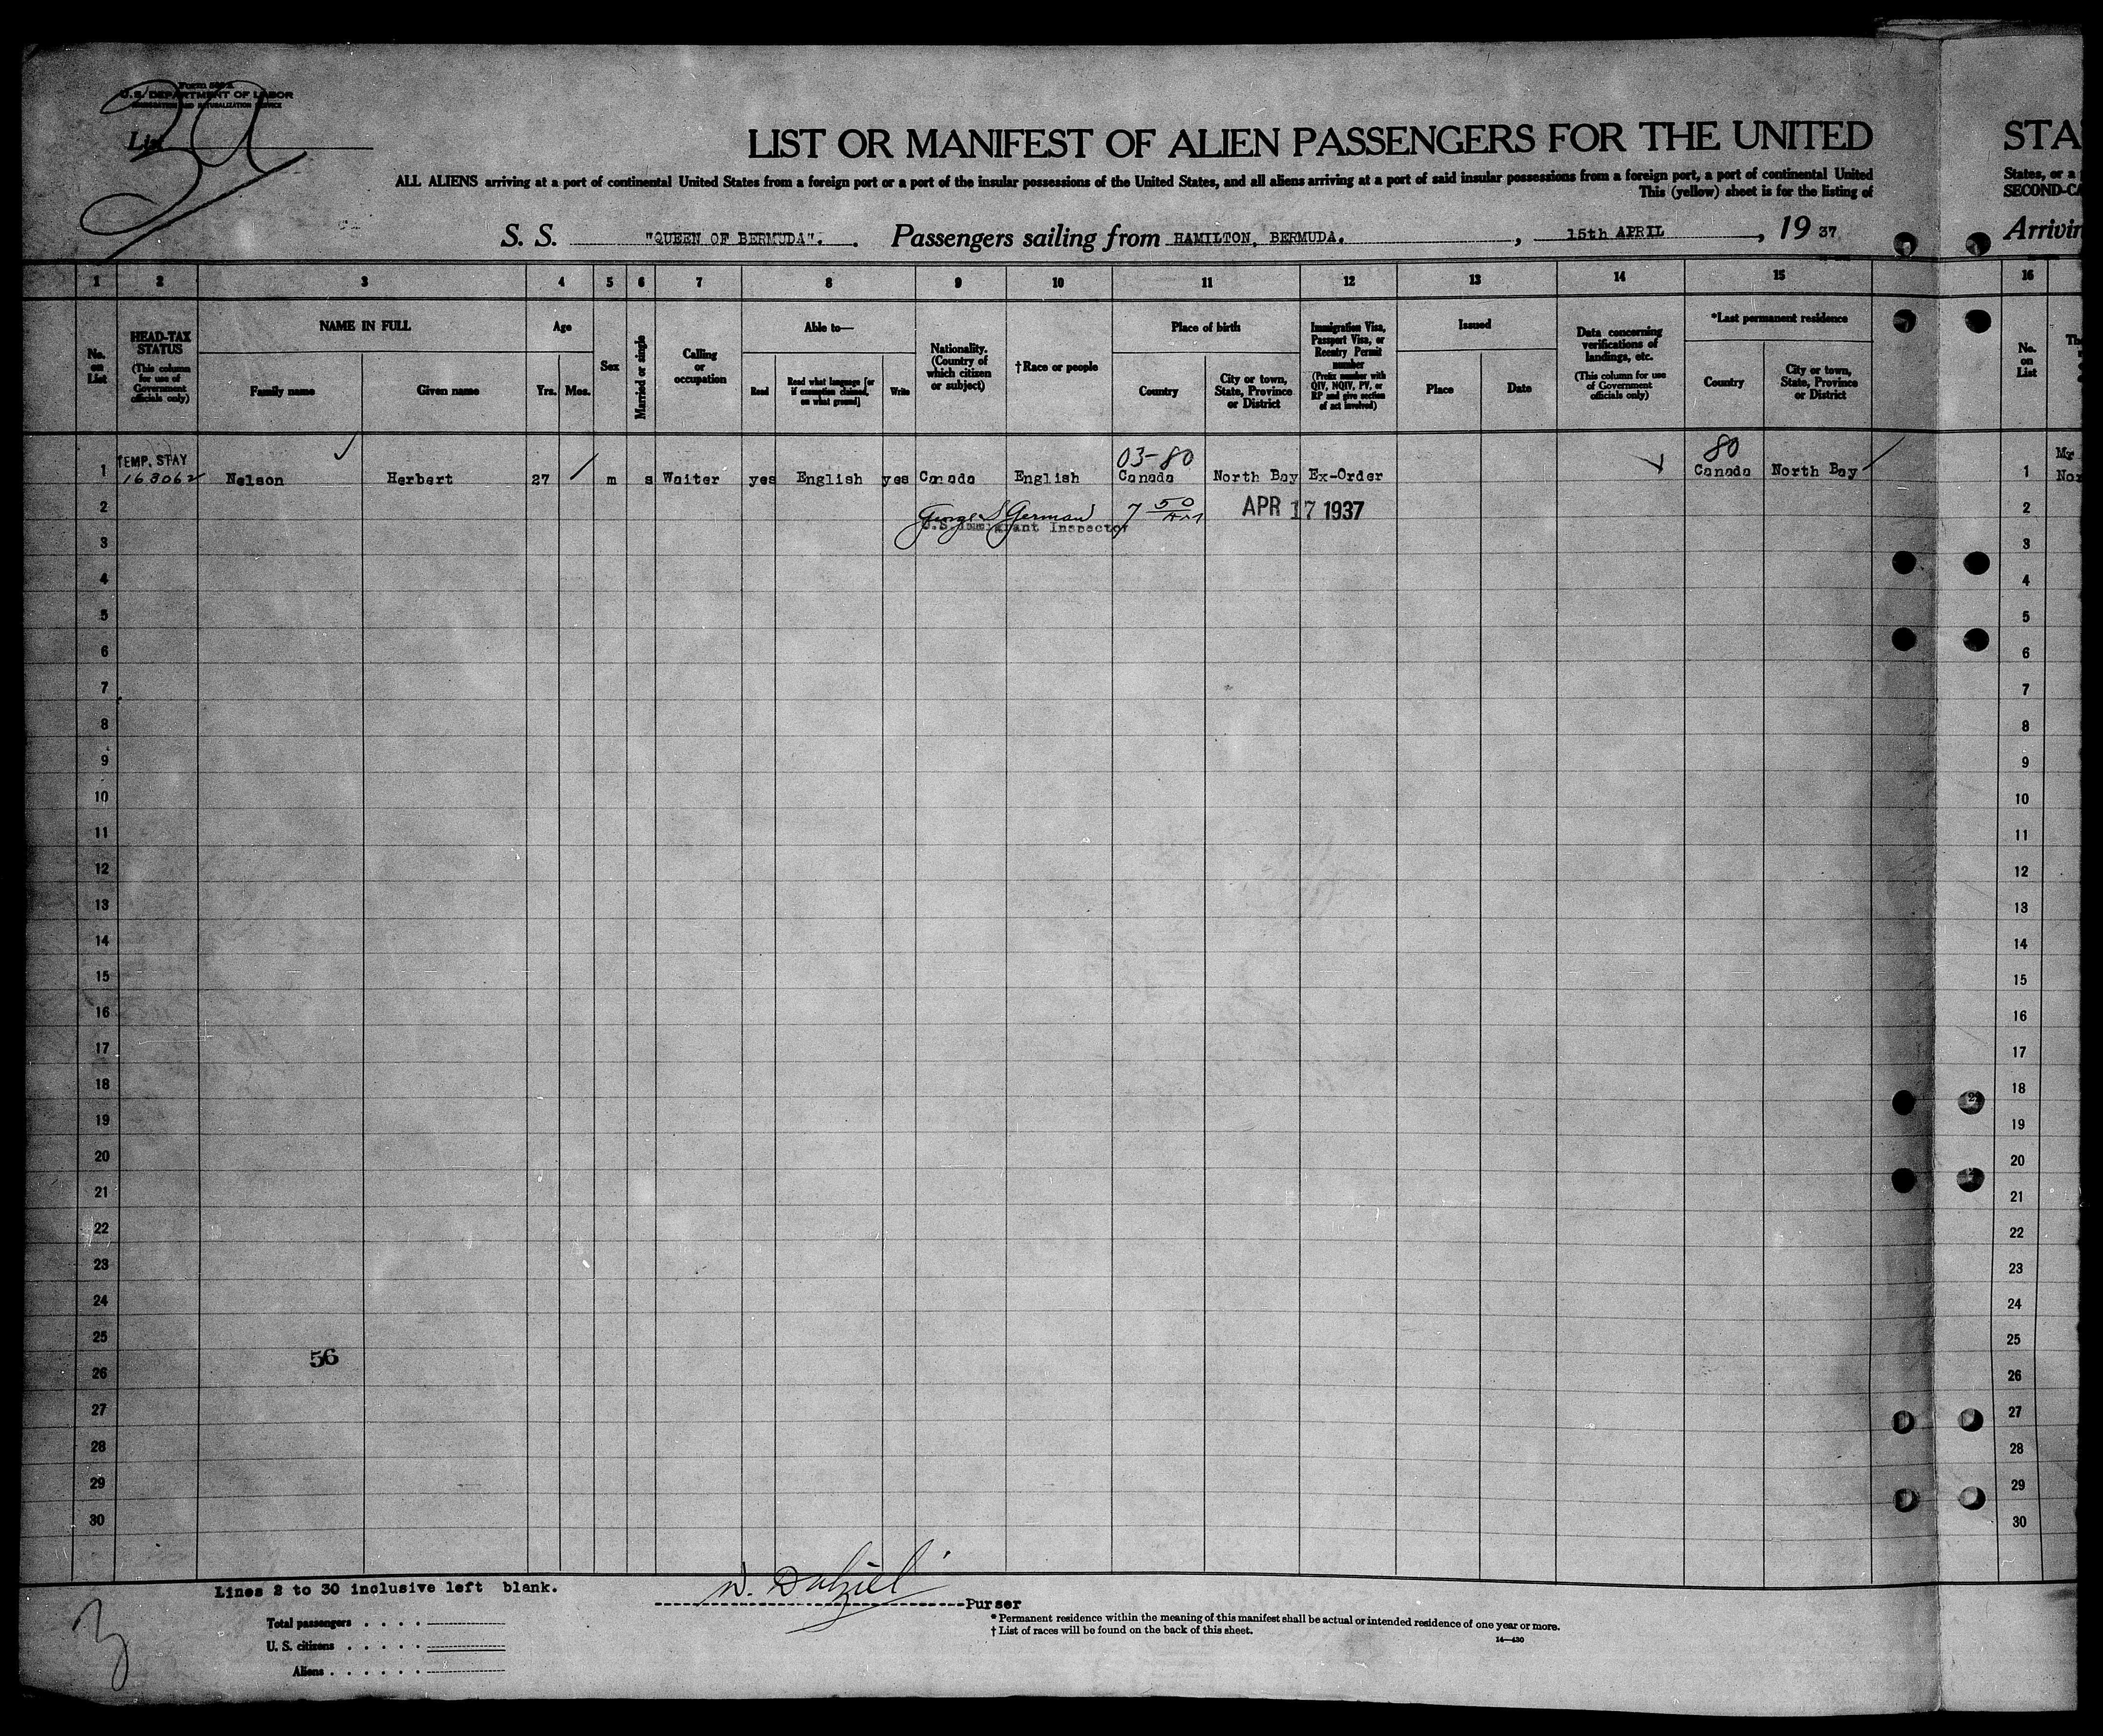 Form 500 A
U. S. DEPARTMENT OF LABOR
IMMIGRATION AND NATURALIZATION SERVICE
List
LIST OR MANIFEST OF ALIEN PASSENGERS FOR THE UNITED STA
ALL ALIENS arriving at a port of continental United States from a foreign port or a port of the insular possessions of the United States, and all aliens arriving at a port of said insular possessions from a foreign port, a port of continental United States, or a
This (yellow) sheet is for the listing of SECOND-CA
S. S. "QUEEN OF BERMUDA". Passengers sailing from HAMILTON, BERMUDA. , 15th APRIL , 19 37 Arrivin
1 2 3 4 5 6 7 8 9 10 11 12 13 14 15 16
No. on List
HEAD-TAX STATUS
(This column for use of Government officials only)
NAME IN FULL
Family name
Given name
Age
Yrs. Mos.
Sex
Married or single
Calling or occupation
Able to—
Read
Read what language [or if exemption claimed, on what ground]
Write
Nationality. (Country of which citizen or subject)
†Race or people
Place of birth
Country
City or town, State, Province or District
Immigration Visa, Passport Visa, or Reentry Permit number
(Prefix number with QIV, NQIV, PV, or RP and give section of act involved)
Issued
Place
Date
Data concerning verifications of landings, etc.
(This column for use of Government officials only)
*Last permanent residence
Country
City or town, State, Province or District
No. on List
TEMP. STAY 03-80 80
1 163062 Nelson Herbert 27 m s Waiter yes English yes Canada English Canada North Bay Ex-Order Canada North Bay 1
George S German 7 50 APR 17 1937
U.S. Immigrant Inspector
2 2
3 3
4 4
5 5
6 6
7 7
8 8
9 9
10 10
11 11
12 12
13 13
14 14
15 15
16 16
17 17
18 18
19 19
20 20
21 21
22 22
23 23
24 24
25 25
56
26 26
27 27
28 28
29 29
30 30
Lines 2 to 30 inclusive left blank.
W. Dalziel
Purser
Total passengers . . . .
U. S. citizens . . . . .
Aliens . . . . . .
* Permanent residence within the meaning of this manifest shall be actual or intended residence of one year or more.
† List of races will be found on the back of this sheet.
14—430
3